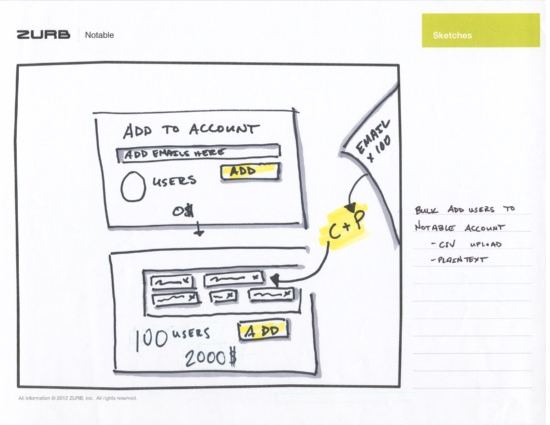 ZURB Notable
Sketches
ADD TO ACCOUNT
ADD EMAILS HERE
0 USERS
ADD
0$
EMAIL
x 100
C+P
100 USERS
ADD
2000$
BULK ADD USERS TO
NOTABLE ACCOUNT
- CSV UPLOAD
- PLAINTEXT
All Information © 2012 ZURB, inc. All rights reserved.